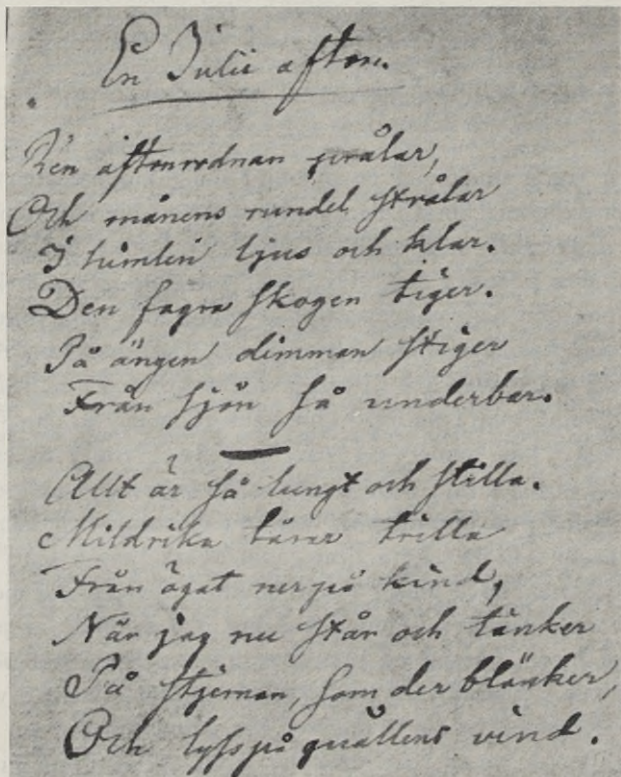 En Julii afton.
Re'n aftonrodnan prålar,
Och månens rundel strålar
I himlen ljus och klar.
Den fagra skogen tiger.
På ängen dimman stiger
Från sjön så underbar.
Allt är så lungt och stilla.
Mildrika tårar trilla
Från ögat ner på kind,
När jag nu står och tänker
På stjernan, som der blänker,
Och lyss på quällens vind.